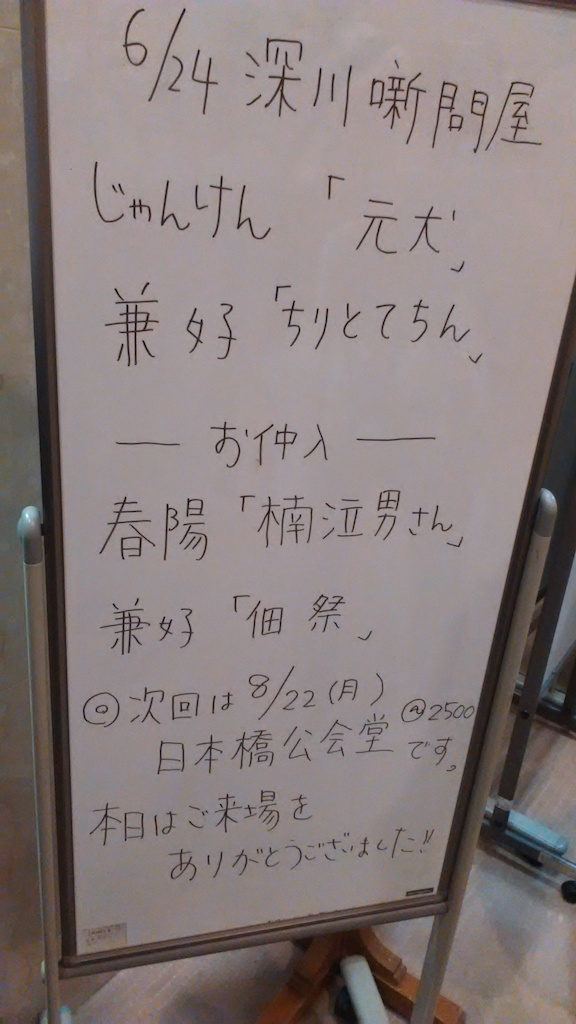 6/24 深川噺問屋
じゃんけん 「元犬」
兼好「ちりとてちん」
― お仲入 ―
春陽「楠泣男さん」
兼好「佃祭」
◎次回は8/22(月)
日本橋公会堂 @2500です。
本日はご来場を
ありがとうございました!!